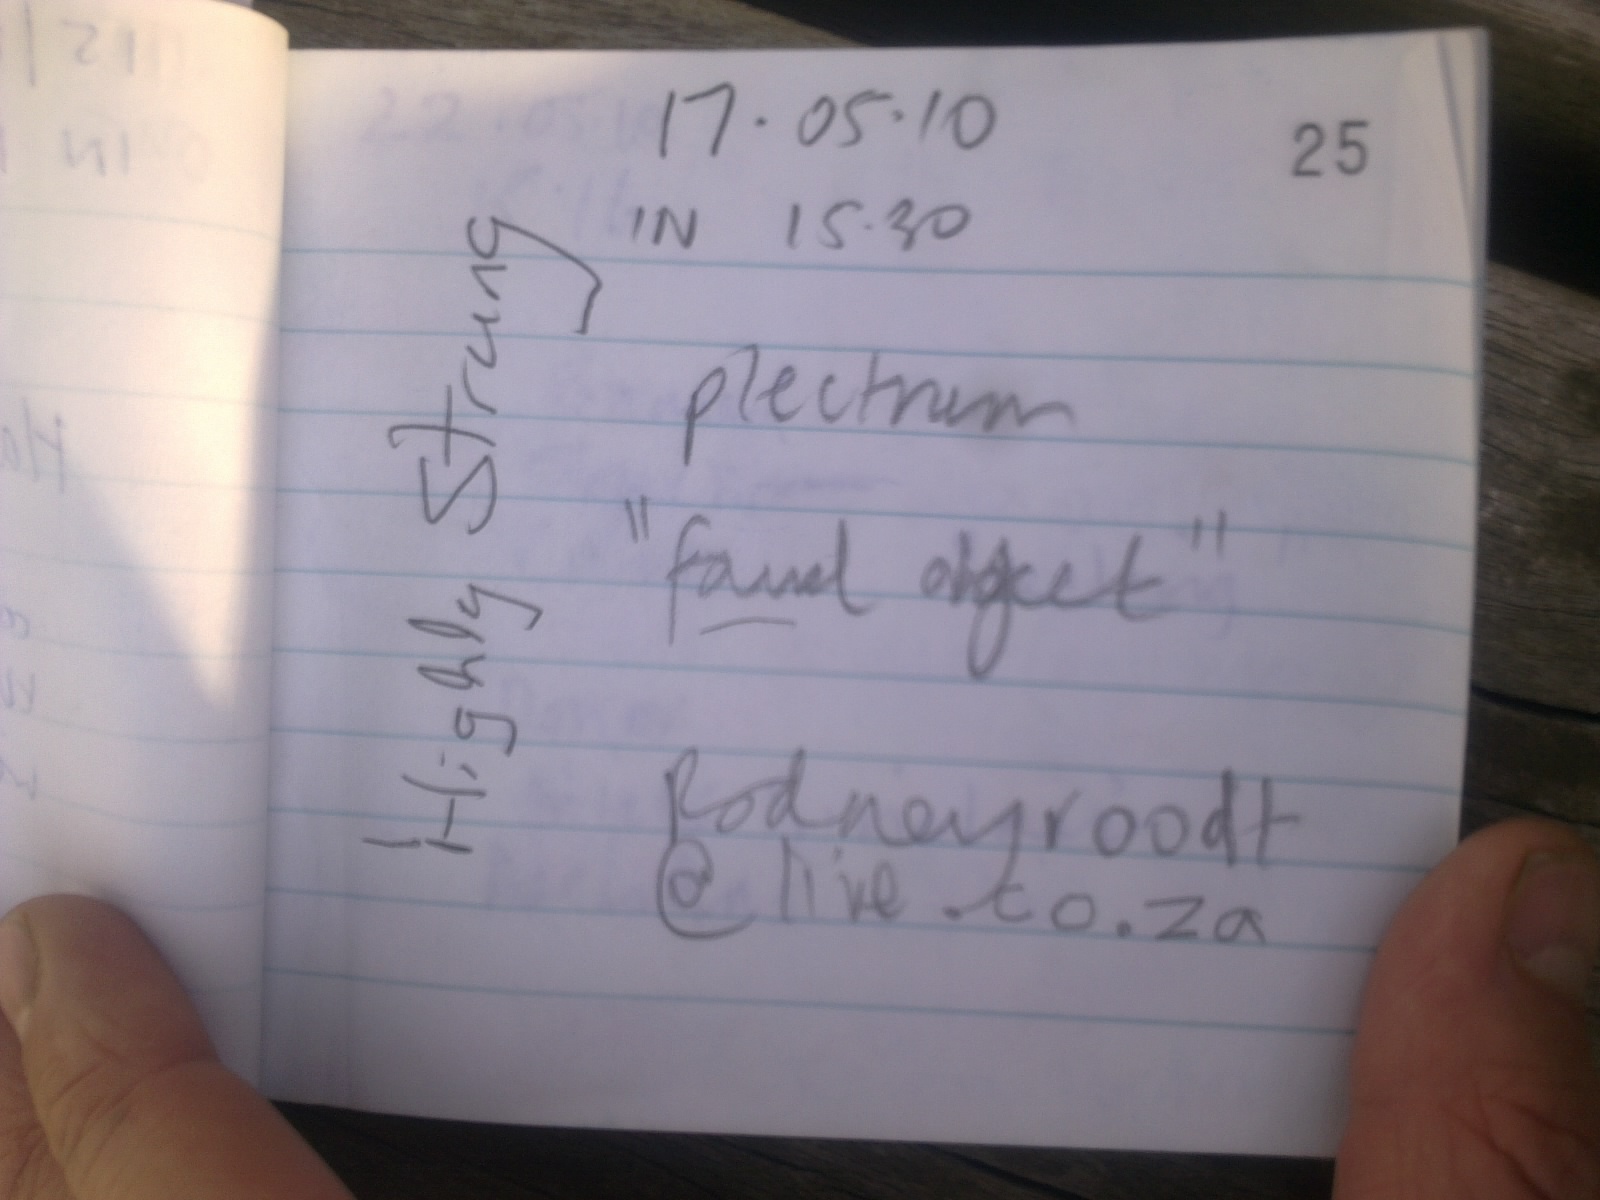 17.05.10
25
IN 15.30
Highly Strung
plectrum
"found object"
Rodneyroodt
@live.co.za